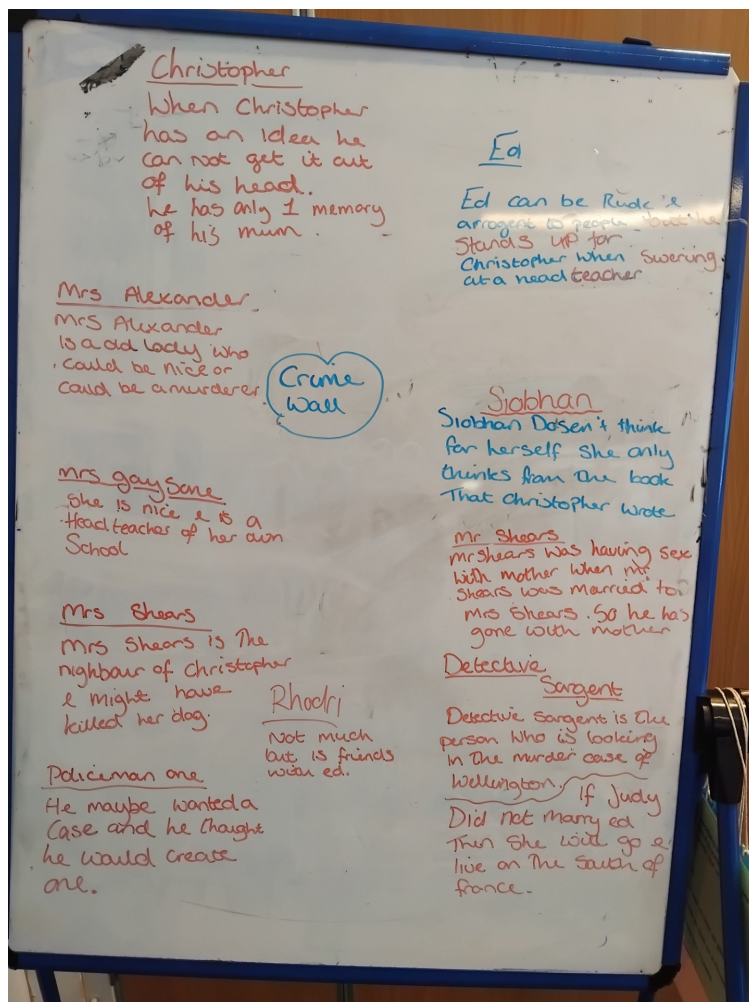 Christopher
When Christopher
has an idea he
can not get it out
of his head.
he has only 1 memory
of his mum.
Mrs Alexander
Mrs Alexander
Is a old lady who
could be nice or
could be a murderer
Crime
Wall
mrs gaysone
She is nice & is a
Head teacher of her own
School
Mrs Shears
Mrs Shears is The
nighbour of Christopher
& might have
killed her dog.
Rhodri
Not much
but is friends
with ed.
Policeman one
He maybe wanted a
case and he thought
he would create
one.
Ed
Ed can be Rude &
arrogent to people but he
Stands up for
Christopher when swering
at a head teacher
Siobhan
Siobhan Dosen't think
for herself she only
thinks from The book
That Christopher wrote
Mr Shears
mr shears was having sex
with mother when mr
shears was married to
Mrs Shears. So he has
gone with mother
Detective
Sargent
Detective Sargent is the
person who is looking
in the murder case of
Wellington.
If Judy
Did not marry ed
Then She will go &
live on The South of
france.